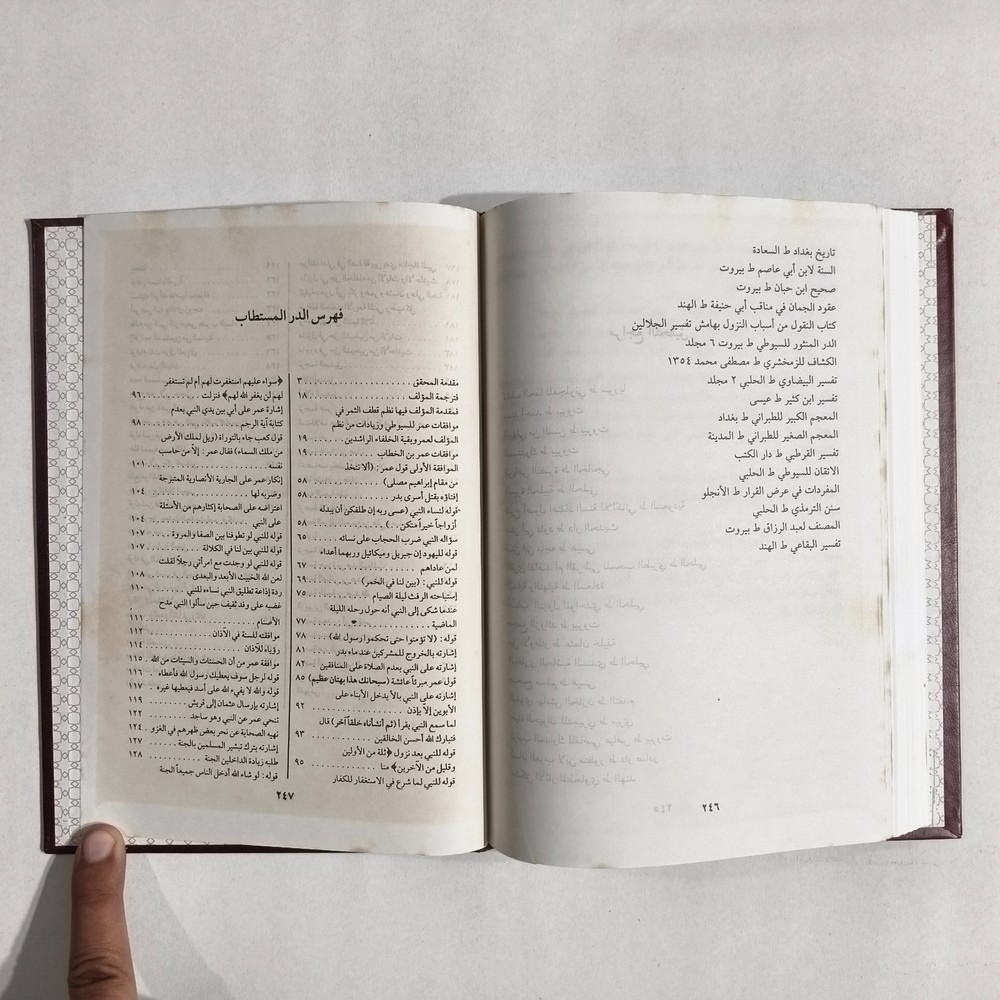 تاريخ بغداد ط السعادة
السنة لابن أبي عاصم ط بيروت
صحيح ابن حبان ط بيروت
عقود الجمان في مناقب أبي حنيفة ط الهند
كتاب النقول من أسباب النزول بهامش تفسير الجلالين
الدر المنثور للسيوطي ط بيروت ٦ مجلد
الكشاف للزمخشري ط مصطفى محمد ١٣٥٤
تفسير البيضاوي ط الحلبي ٢ مجلد
تفسير ابن كثير ط عيسى
المعجم الكبير للطبراني ط بغداد
المعجم الصغير للطبراني ط المدينة
تفسير القرطبي ط دار الكتب
الاتقان للسيوطي ط الحلبي
المفردات في عرض القرار ط الأنجلو
سنن الترمذي ط الحلبي
المصنف لعبد الرزاق ط بيروت
تفسير البقاعي ط الهند
٢٤٦
فهرس الدر المستطاب
مقدمة المحقق ٣
فترجمة المؤلف ١٨
فمقدمة المؤلف فيها نظم قطف الثمر في
موافقات عمر للسيوطي وزيادات من نظم
المؤلف لعمر وبقية الخلفاء الراشدين ١٩
موافقات عمر بن الخطاب ١٩
الموافقة الأولى قول عمر: (ألا نتخذ
من مقام إبراهيم مصلى) ٥٨
إفتاؤه بقتل أسرى بدر ٥٨
قوله لنساء النبي (عسى ربه إن طلقكن أن يبدله
أزواجاً خيراً منكن..) ٥٨
سؤاله النبي ضرب الحجاب على نسائه ٦٥
قوله لليهود إن جبريل وميكائيل وربهما أعداء
لمن عاداهم ٦٧
قوله للنبي: (بين لنا في الخمر) ٦٩
إستباحته الرفث ليلة الصيام ٧٥
عندما شكى إلى النبي أنه حول رحله الليلة
الماضية ٧٧
قوله: (لا تؤمنوا حتى تحكموا رسول الله) ٧٨
إشارته بالخروج للمشركين عند ماء بدر ٨١
إشارته على النبي بعدم الصلاة على المنافقين ٨٢
قول عمر مبرئاً عائشة (سبحانك هذا بهتان عظيم) ٨٥
إشارته على النبي بألا يدخل الأبناء على
الأبوين إلا بإذن ٩٢
لما سمع النبي يقرأ (ثم أنشأناه خلقاً آخر) قال
فتبارك الله أحسن الخالقين ٩٣
قوله للنبي بعد نزول ﴿ثلة من الأولين
وقليل من الآخرين﴾ منا ٩٥
قوله للنبي لما شرع في الاستغفار للكفار
﴿سواء عليهم استغفرت لهم أم لم تستغفر
لهم لن يغفر الله لهم﴾ فنزلت ٩٦
إشارة عمر على أبي بين يدي النبي بعدم
كتابة آية الرجم ٩٨
قول كعب جاء بالتوراة (ويل لملك الأرض
من ملك السماء) فقال عمر: إلا من حاسب
نفسه ١٠١
إنكار عمر على الجارية الأنصارية المتبرجة
وضربه لها ١٠٤
اعتراضه على الصحابة إكثارهم من الأسئلة
على النبي ١٠٤
قوله للنبي لو تطوفنا بين الصفا والمروة ١٠٧
قوله للنبي بين لنا في الكلالة ١٠٧
قوله للنبي لو وجدت مع امرأتي رجلاً لقلت
لعن الله الخبيث الأبعد والبعدى ١٠٨
رده إذاعة تطليق النبي نساءه للنبي ١١٠
غضبه على وفد ثقيف حين سألوا النبي مدح
الأصنام ١١١
موافقته للسنة في الآذان ١١٢
رؤياه للأذان ١١٤
موافقة عمر من أن الحسنات والسيئات من الله ١١٥
قوله لرجل سوف يعطيك رسول الله فأعطاه ١١٦
قوله والله لا يفيء الله على أسد فيعطيها غيره ١١٧
إشارته بإرسال عثمان إلى قريش ١١٩
تنحي عمر عن النبي وهو ساجد ١٢٢
نهيه الصحابة عن نحر بعض ظهرهم في الغزو ١٢٤
إشارته بترك تبشير المسلمين بالجنة ١٢٧
طلبه زيادة الداخلين الجنة ١٢٨
قوله: لو شاء الله أدخل الناس جميعاً الجنة
٢٤٧